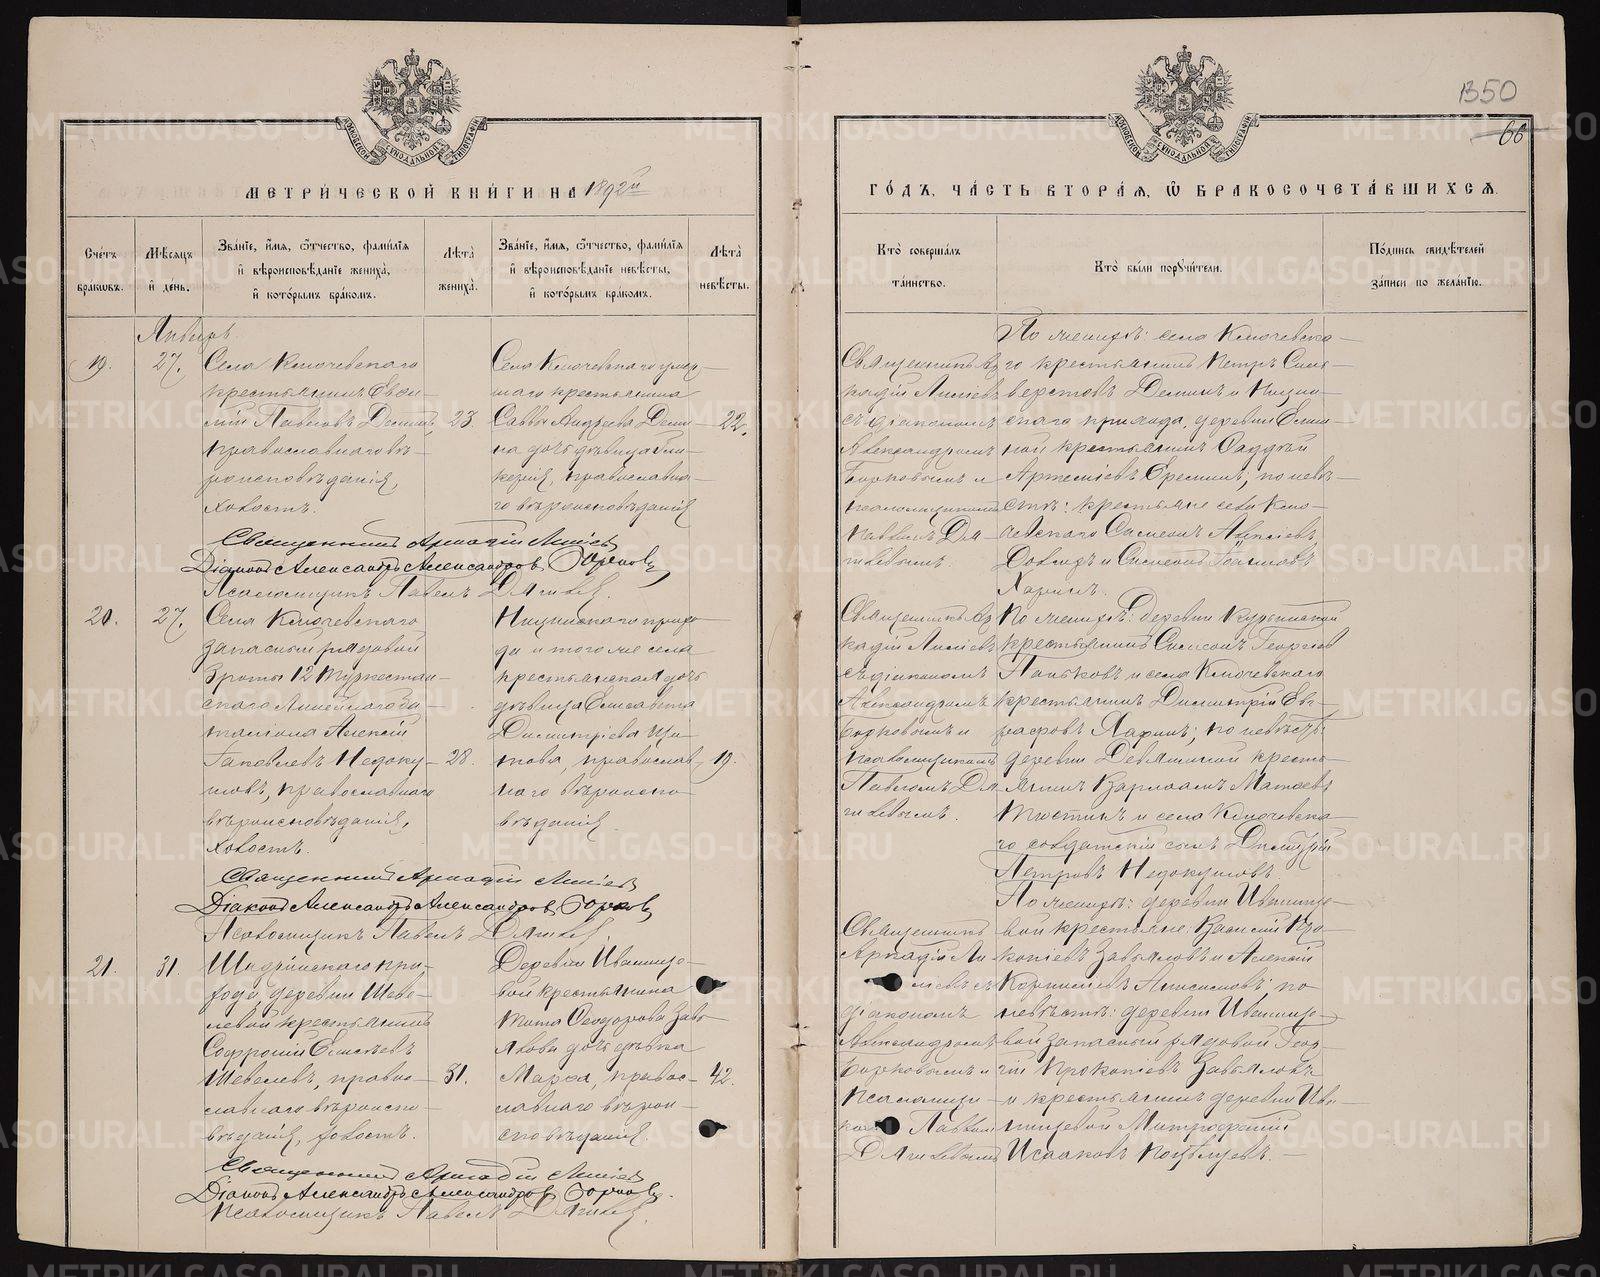 350
66
МЕТРИЧЕСКОЙ КНИГИ НА 1892й
ГОДЪ, ЧАСТЬ ВТОРАЯ, Ѡ БРАКОСОЧЕТАВШИХСЯ.
Счетъ браковъ.
Мѣсяцъ и день.
Званіе, имя, ѿчество, фамилія и вѣроисповѣданіе жениха, и которымъ бракомъ.
Лѣта жениха.
Званіе, имя, ѿчество, фамилія и вѣроисповѣданіе невѣсты, и которымъ бракомъ.
Лѣта невѣсты.
Кто совершалъ таинство.
Кто были поручители.
Подпись свидѣтелей записи по желанію.
Январь
19.
27.
Села Ключевскаго
крестьянинъ Евѳи-
мій Павловъ Деминъ,
православнаго вѣ-
роисповѣданія,
холостъ.
23.
Села Ключевскаго умер-
шаго крестьянина
Саввы Андреева Деми-
на дочь дѣвица Гли-
керія, православна-
го вѣроисповѣданія
22.
Священникъ Ар-
кадій
съ діакономъ
Александромъ
Горновымъ и
псаломщикомъ
Павломъ Дя-
гилевымъ.
По женихѣ: села Ключевска-
го крестьянинъ Петръ Сили-
верстовъ Деминъ и Ницин-
скаго прихода, деревни Елки-
ной крестьянинъ Ѳаддѣй
Артеміевъ Ереминъ; по невѣ-
стѣ: крестьяне села Клю-
чевскаго Симеонъ Алексіевъ
и Симеонъ Іоанновъ
Ларинъ.
Священникъ Аркадій
Діаконъ Александръ Александровъ Горновъ
Псаломщикъ Павелъ Дягилев.
20.
27.
Села Ключевскаго
запасный рядовой
роты 12 Туркестан-
скаго Линейнаго ба-
таліона Алексій
Іаковлевъ Недоку-
шовъ, православнаго
вѣроисповѣданія,
холостъ.
28.
Ницинскаго прихо-
да и того же села
крестьянская дочь
дѣвица Елисавета
Димитріева
православ-
наго вѣроиспо-
вѣданія
19.
Священникъ Ар-
кадій
съ діакономъ
Александромъ
Горновымъ и
псаломщикомъ
Павломъ Дя-
гилевымъ.
По женихѣ: деревни
крестьянинъ Симеонъ Георгіев
Паньковъ и села Ключевскаго
крестьянинъ Димитрій Ев-
графовъ Ларинъ; по невѣстѣ:
деревни Девяшиной кресть-
янинъ Варлаамъ Матѳеев
и села Ключевска-
го солдатскій сынъ Димитрій
Петровъ Недокушовъ.
Священникъ Аркадій
Діаконъ Александръ Александровъ Горновъ
Псаломщикъ Павелъ Дягилев.
21.
31.
Шадринскаго при-
хода, деревни Шеве-
левой крестьянинъ
Софроній Елисѣевъ
Шевелевъ, право-
славнаго вѣроиспо-
вѣданія, холостъ.
31.
Деревни Иванищо-
вой крестьянина
Тита Ѳеодорова Завь-
ялова дочь дѣвка
Марѳа, правос-
лавнаго вѣрои-
сповѣданія.
42.
Священникъ
Аркадій
съ
діакономъ
Александромъ
Горновымъ и
псаломщи-
Павлом
Дягилевымъ
По женихѣ: деревни Иванищо-
вой крестьяне: Василій Про-
копіевъ Завьяловъ и Алексій
Корниліевъ Анисимовъ; по
невѣстѣ: деревни Иванищо-
вой запасный рядовой Геор-
гій Прокопіевъ Завьяловъ
и крестьянинъ деревни Ива-
нищевой Митрофаній
Исааковъ
Священникъ Аркадій
Діаконъ Александръ Александровъ Горновъ.
Псаломщикъ Павелъ Дягилев.
METRIKI.GASO-URAL.RU